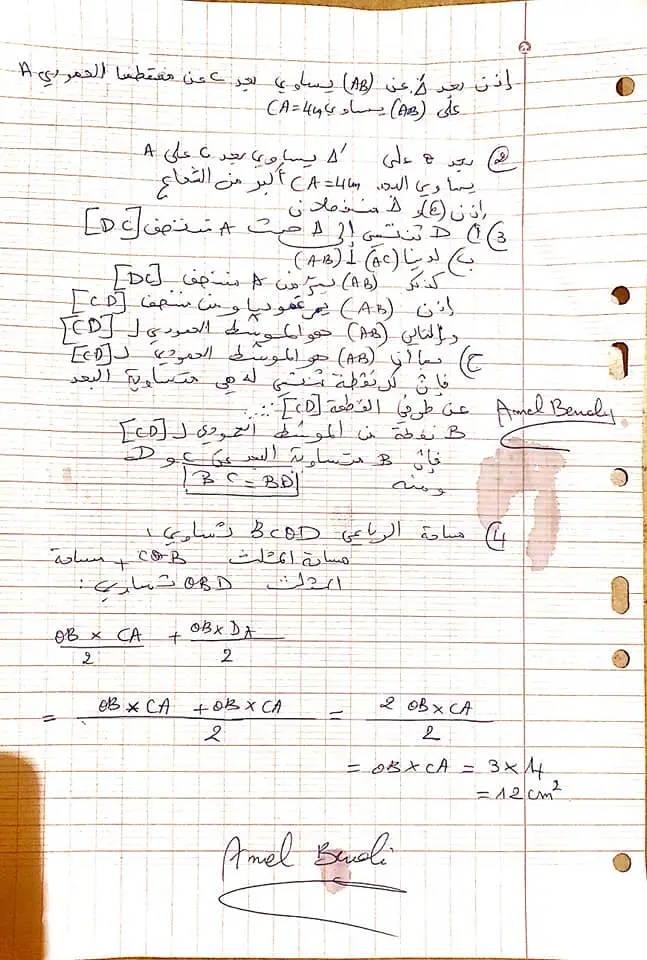 إذن بعد Δ عن (AB) يساوي بعد C عن مسقطها العمودي A
على (AB) يساوي CA=4cm
② بعد θ على Δ' يساوي بعد C على A
يساوي البعد CA=4cm أكبر من الشعاع
إذن (C) و Δ منفصلان
3) أ) D تنتمي إلى Δ حيث A منتصف [DC]
ب) لدينا (AC) ⊥ (AB)
كذلك (AB) يمر من A منتصف [DC]
إذن (AB) يمر عموديا من منتصف [CD]
وبالتالي (AB) هو الموسط العمودي لـ [CD]
ج) بما أن (AB) هو الموسط العمودي لـ [CD]
فإن كل نقطة تنتمي له هي متساوية البعد
عن طرفي القطعة [CD]
Amel Bendy
B نقطة من الموسط العمودي لـ [CD]
فإن B متساوية البعد عن C و D
ومنه BC = BD
4) مساحة الرباعي BCOD تساوي:
مساحة المثلث COB + مساحة
المثلث OBD تساوي:
OB × CA / 2 + OB × DA / 2
= OB × CA + OB × CA / 2 = 2 OB × CA / 2
= OB × CA = 3 × 4
= 12 cm²
Amel Bendi